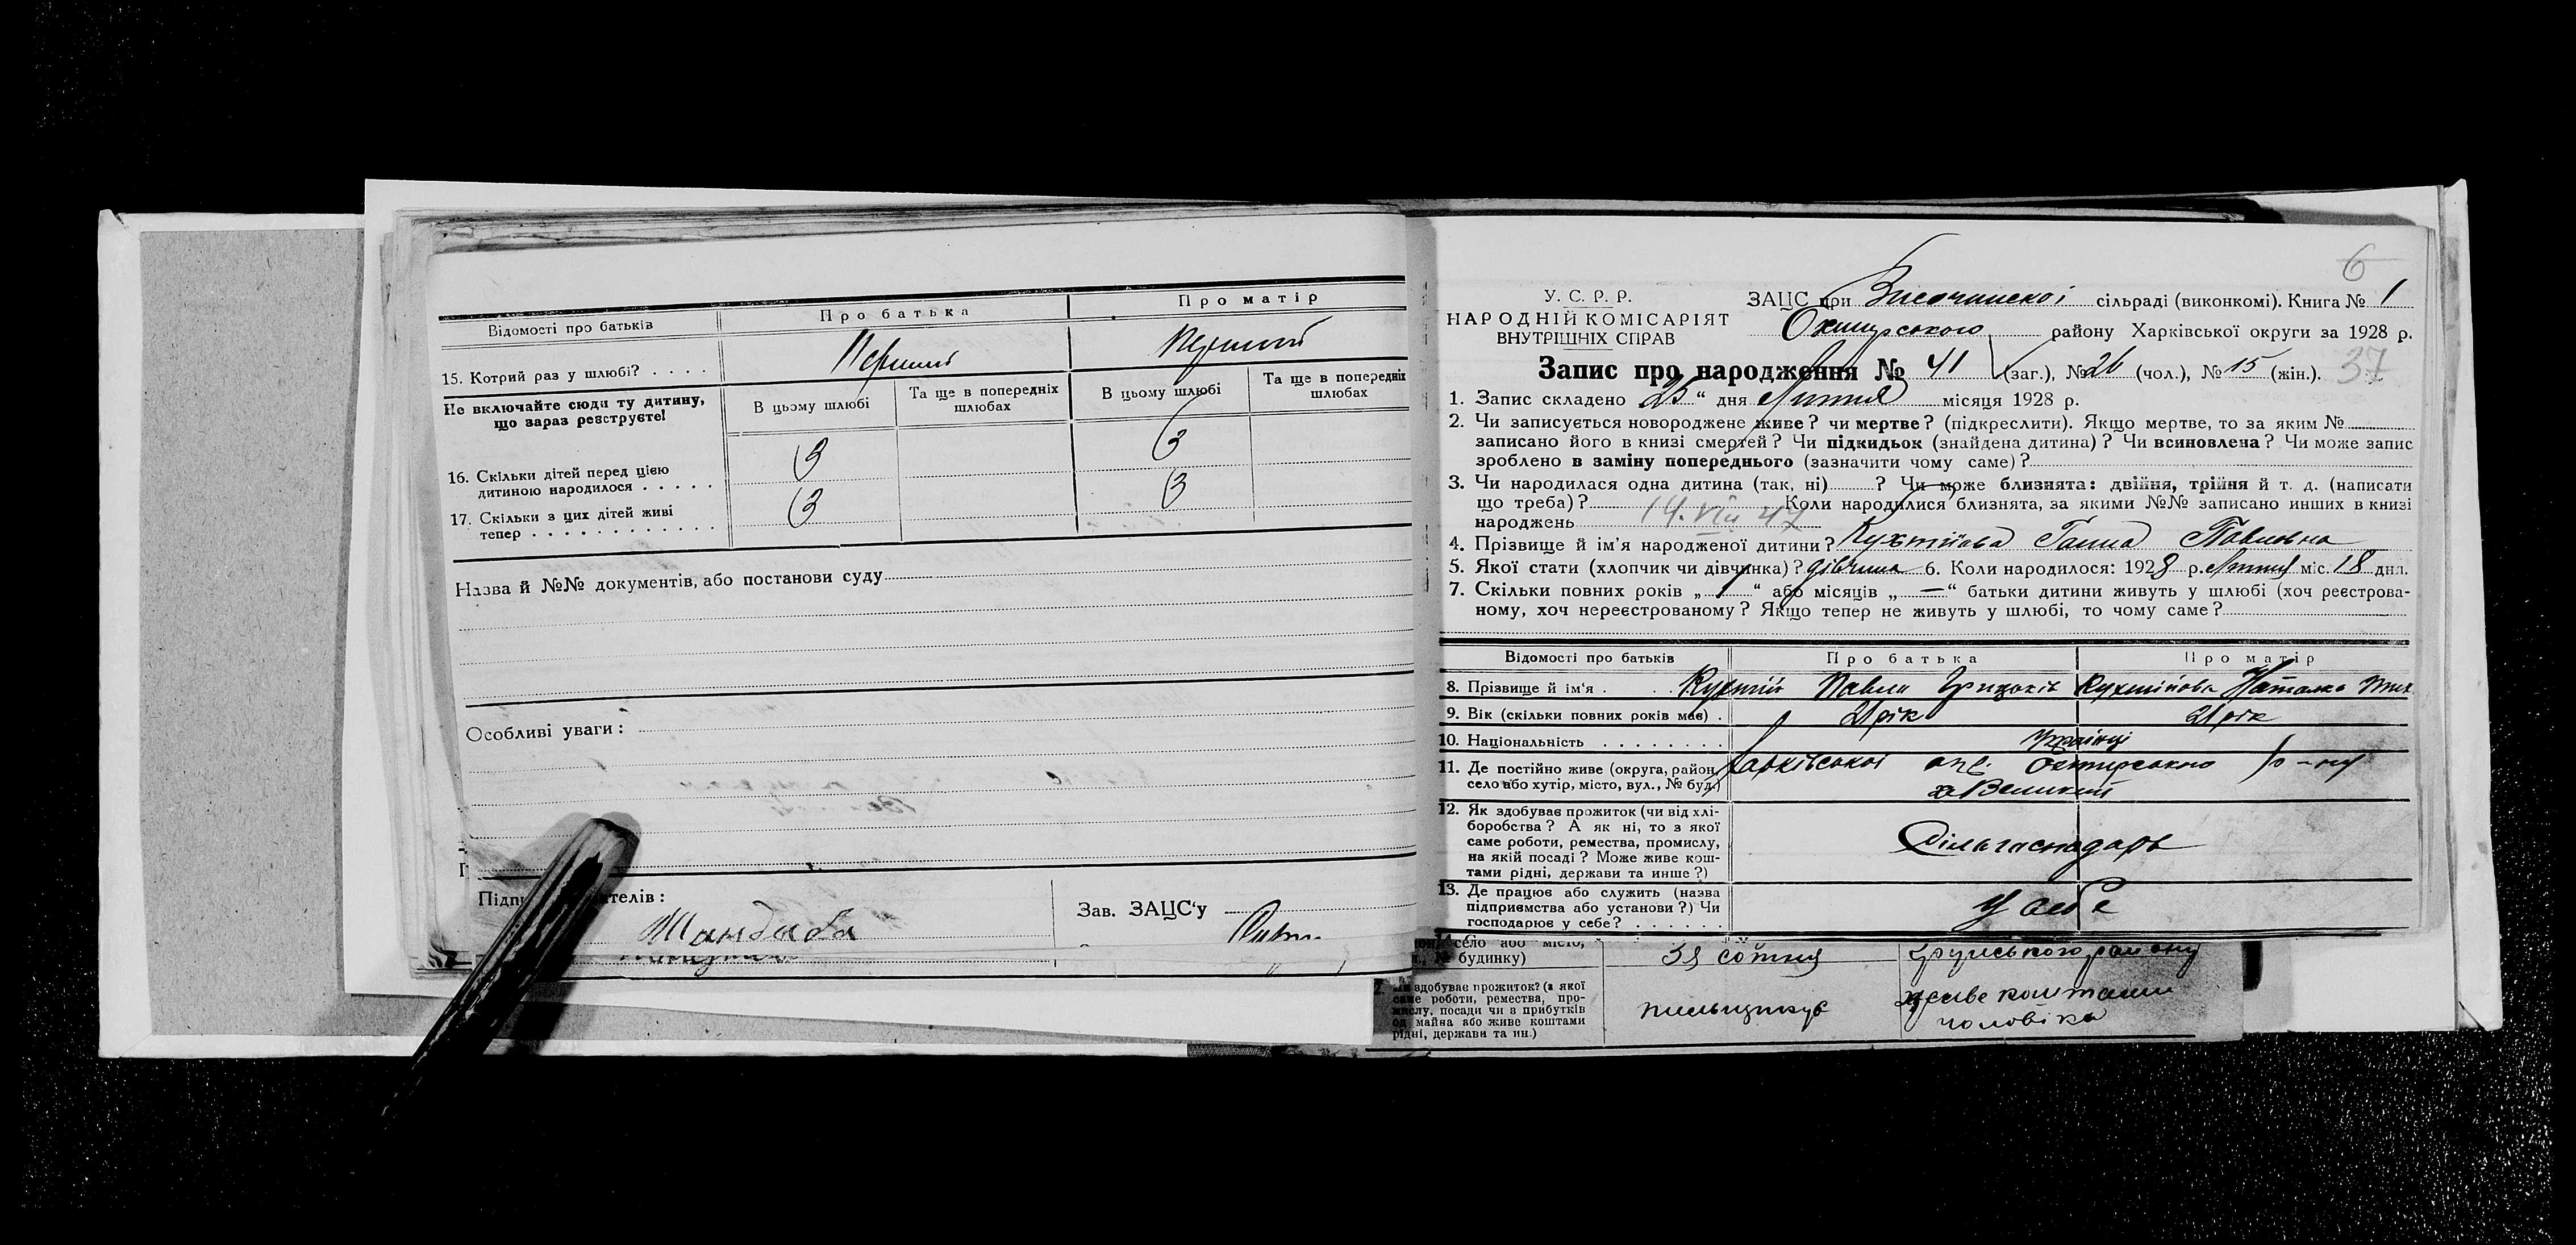 Відомості про батьків
Про батька
Про матір
15. Котрий раз у шлюбі? . . . .
Перший
Перший
Не включайте сюди ту дитину,
що зараз реєструєте!
В цьому шлюбі
Та ще в попередніх
шлюбах
В цьому шлюбі
Та ще в попередніх
шлюбах
16. Скільки дітей перед цією
дитиною народилося . . . . .
3
3
17. Скільки з цих дітей живі
тепер . . . . . . . . . . . .
3
3
Назва й №№ документів, або постанови суду
Особливі уваги:
Зав. ЗАЦС'у
6
У. С. Р. Р.
НАРОДНІЙ КОМІСАРІЯТ
ВНУТРІШНІХ СПРАВ
ЗАЦС при сільраді (виконкомі). Книга № 1
району Харківської округи за 1928 р.
Запис про народження № 41 (заг.), № 26 (чол.), № 15 (жін.). 37
1. Запис складено „25“ дня Липня місяця 1928 р.
2. Чи записується новороджене живе? чи мертве? (підкреслити). Якщо мертве, то за яким №
записано його в книзі смертей? Чи підкидьок (знайдена дитина)? Чи всиновлена? Чи може запис
зроблено в заміну попереднього (зазначити чому саме)?
3. Чи народилася одна дитина (так, ні) ? Чи може близнята: двійня, трійня й т. д. (написати
що треба)? Коли народилися близнята, за якими №№ записано инших в книзі
народжень 14. VIII 47
4. Прізвище й ім'я народженої дитини? Кухтійова Ганна Павловна
5. Якої стати (хлопчик чи дівчинка)? дівчина 6. Коли народилося: 1928 р. Липня міс. 18 дня.
7. Скільки повних років „ 1 “ або місяців „ — “ батьки дитини живуть у шлюбі (хоч реєстрова-
ному, хоч нереєстрованому? Якщо тепер не живуть у шлюбі, то чому саме?
Відомості про батьків
Про батька
Про матір
8. Прізвище й ім'я . .
Кухтій Павло
Кухтійова Наталка
9. Вік (скільки повних років має) .
21 рік
21 рік
10. Національність . . . . . . . .
Українці
11. Де постійно живе (округа, район,
село або хутір, місто, вул., № буд.)
Харківської окр. Охтирського р-ну
х Великий
12. Як здобуває прожиток (чи від хлі-
боробства? А як ні, то з якої
саме роботи, ремества, промислу,
на якій посаді? Може живе кош-
тами рідні, держави та инше?)
Сільгосподарь
13. Де працює або служить (назва
підприємства або установи?) Чи
господарює у себе? . . . . . .
У себе
село або місто,
будинку)
38 сотня
району
здобуває прожиток? (з якої
саме роботи, ремества, про-
мислу, посади чи з прибутків
од майна або живе коштами
рідні, держави та ин.)
живе коштами
чоловіка